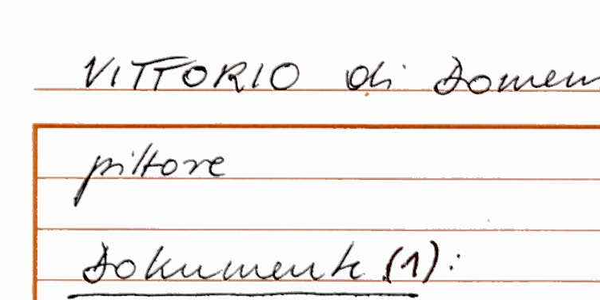 VITTORIO di Domen
pittore
Dokumente (1):